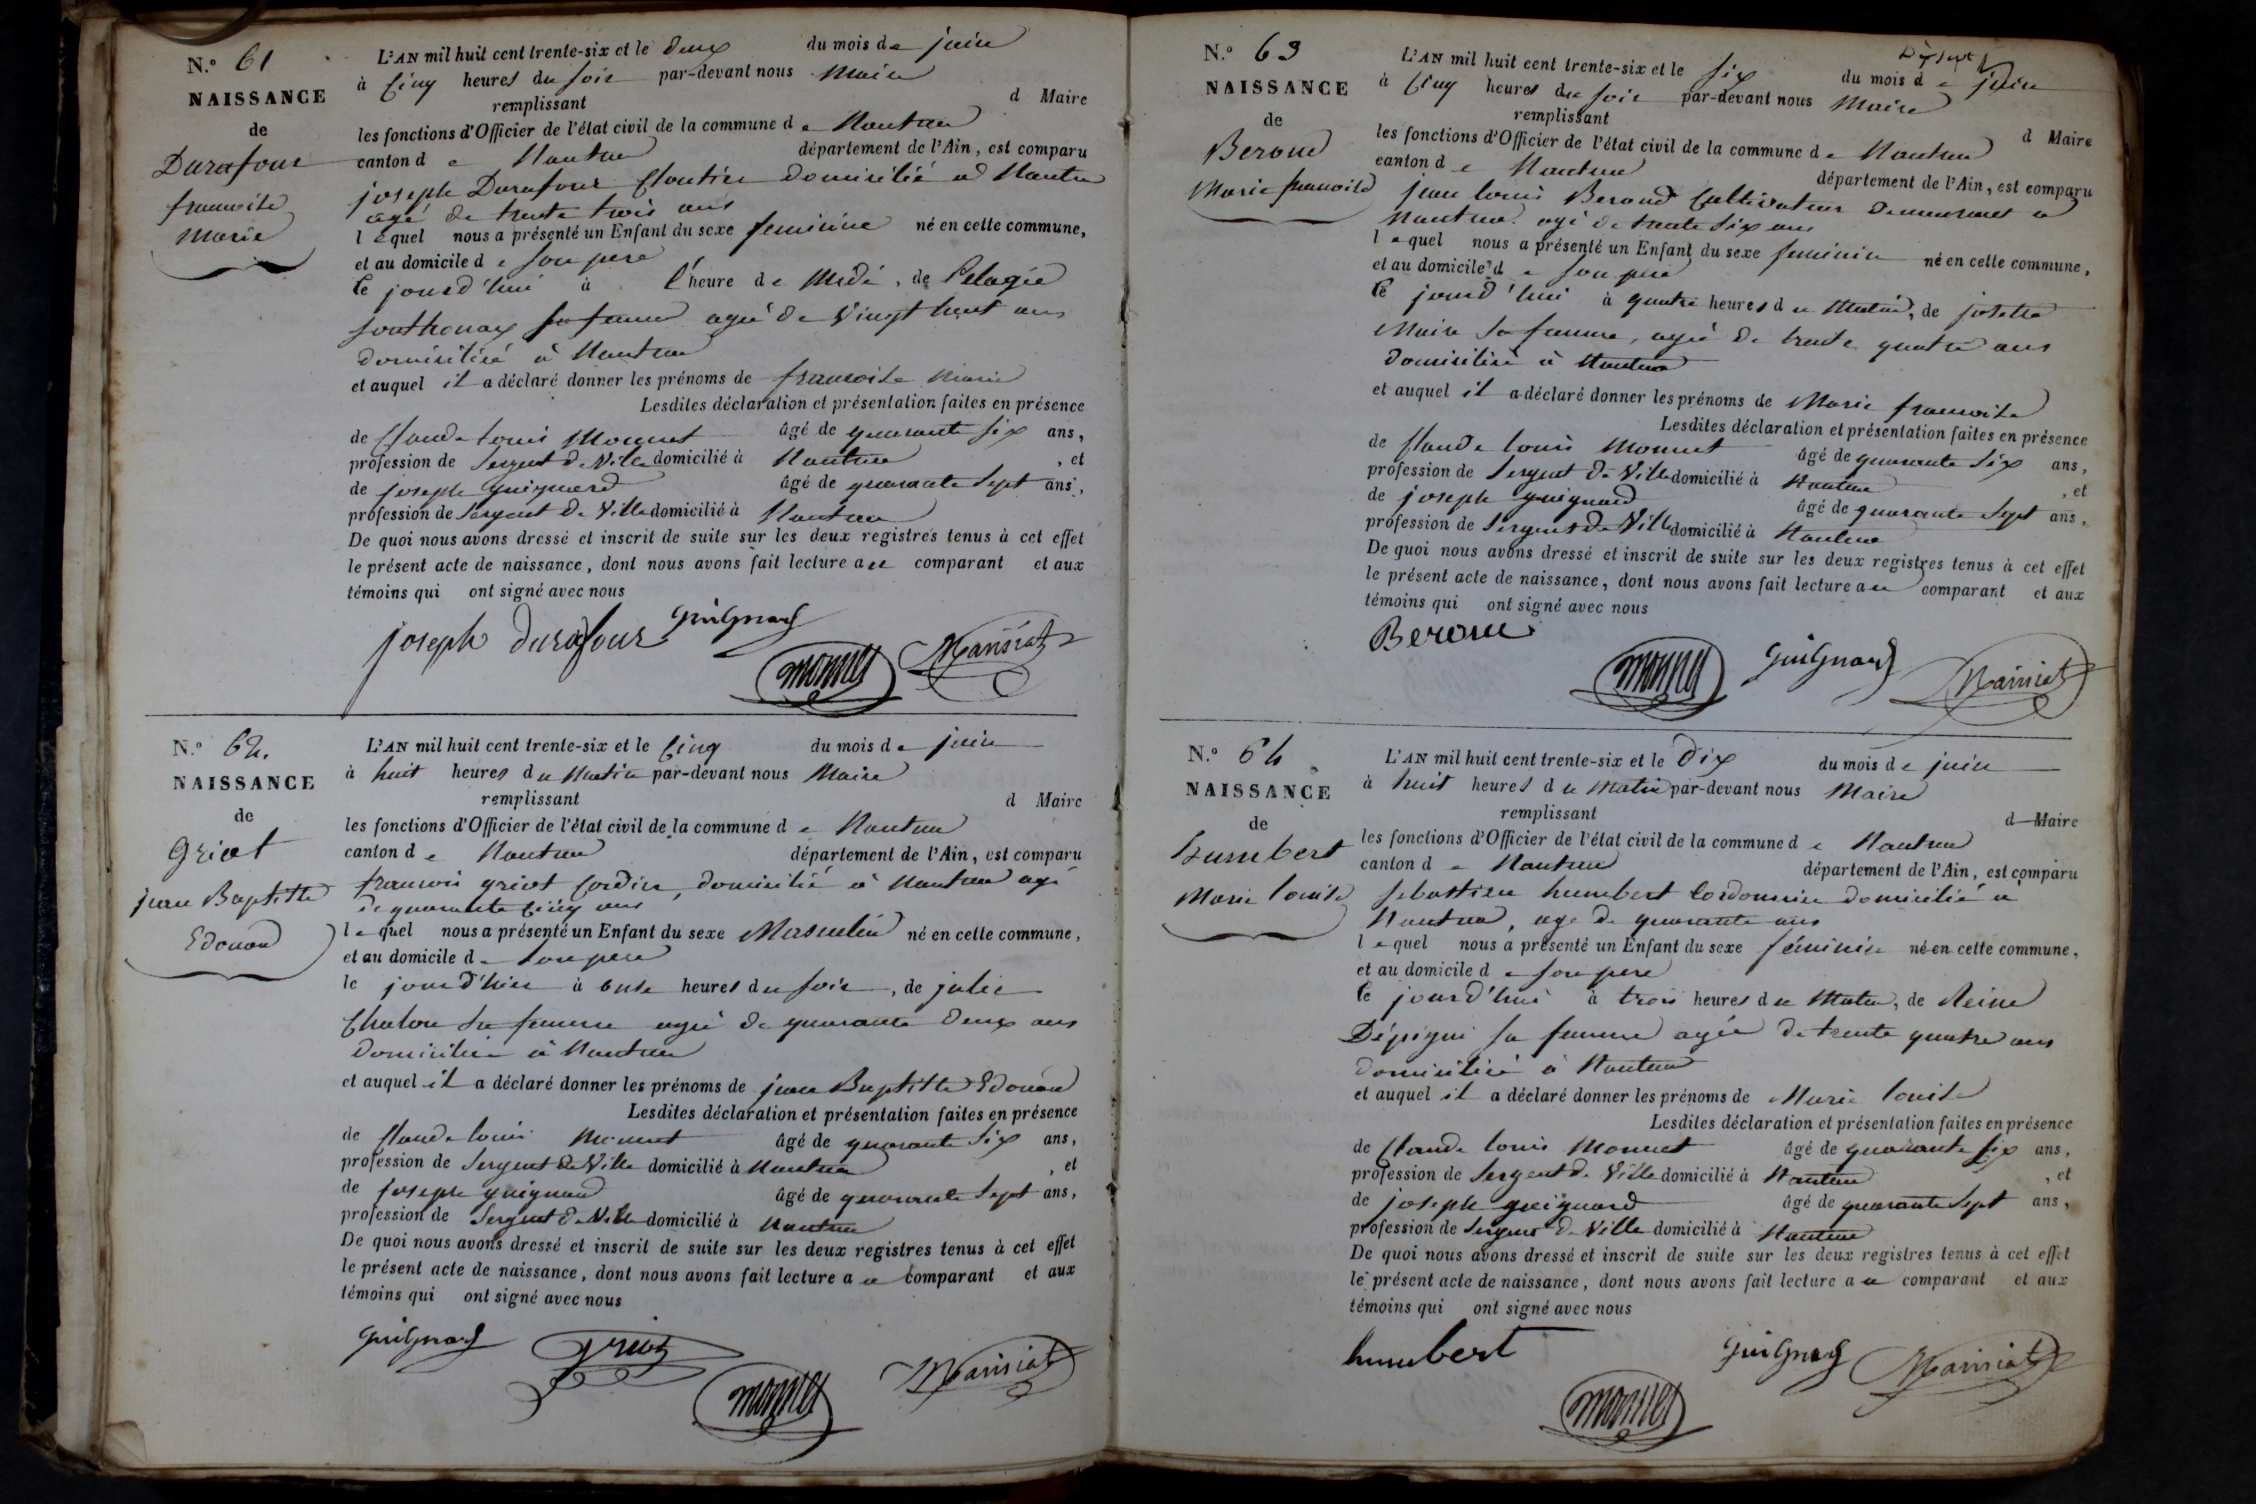 N.° 61
NAISSANCE
de
Durafour
francoise
Marie
L'AN mil huit cent trente-six et le deux du mois de juin
à Cinq heures du soir par-devant nous Maire
remplissant d Maire
les fonctions d'Officier de l'état civil de la commune de Nantua
canton de Nantua département de l'Ain, est comparu
joseph Durafour Cloutier domicilié a Nantua
agé de trente trois ans
lequel nous a présenté un Enfant du sexe feminine né en cette commune,
et au domicile de son pere
le jourd'hui à l'heure de Midi, de Pelagie
Southonax sa femme agée de Vingt huit ans
domiciliée à Nantua
et auquel il a déclaré donner les prénoms de francoise Marie
Lesdites déclaration et présentation faites en présence
de Claude Louis Monnet âgé de quarante six ans,
profession de Sergent de Ville domicilié à Nantua , et
de joseph guignard âgé de quarante Sept ans,
profession de Sergent de Ville domicilié à Nantua
De quoi nous avons dressé et inscrit de suite sur les deux registres tenus à cet effet
le présent acte de naissance, dont nous avons fait lecture au comparant et aux
témoins qui ont signé avec nous
joseph durafour guignard
monnet Mansiat
N.° 62.
NAISSANCE
de
Griot
jean Baptiste
Edouard
L'AN mil huit cent trente-six et le Cinq du mois de juin
à huit heures du Matin par-devant nous Maire
remplissant d Maire
les fonctions d'Officier de l'état civil de la commune de Nantua
canton de Nantua département de l'Ain, est comparu
francois griot Cordier, domicilié à Nantua agé
de quarante Cinq ans
lequel nous a présenté un Enfant du sexe Masculin né en cette commune,
et au domicile de son pere
le jour d'hier à onse heures du soir, de julie
Chalon sa femme agée de quarante deux ans
domiciliée à Nantua
et auquel il a déclaré donner les prénoms de jean Baptiste Edouard
Lesdites déclaration et présentation faites en présence
de Claude louis Monnet âgé de quarante Six ans,
profession de Sergent de Ville domicilié à Nantua , et
de joseph guignard âgé de quarante Sept ans,
profession de Sergent de Ville domicilié à Nantua
De quoi nous avons dressé et inscrit de suite sur les deux registres tenus à cet effet
le présent acte de naissance, dont nous avons fait lecture au comparant et aux
témoins qui ont signé avec nous
guignard griot
monnet Mansiat
N.° 63
NAISSANCE
de
Beroud
Marie francoise
L'AN mil huit cent trente-six et le six du mois de juin
à Cinq heures du soir par-devant nous Maire
remplissant d Maire
les fonctions d'Officier de l'état civil de la commune de Nantua
canton de Nantua département de l'Ain, est comparu
jean louis Beroud Cultivateur demeurant a
Nantua agé de trente six ans
lequel nous a présenté un Enfant du sexe feminin né en cette commune,
et au domicile de son pere
le jourd'hui à quatre heures du Matin, de josette
Maire sa femme, agée de trente quatre ans
domiciliée à Nantua
et auquel il a déclaré donner les prénoms de Marie francoise
Lesdites déclaration et présentation faites en présence
de Claude louis Monnet âgé de quarante six ans,
profession de Sergent de Ville domicilié à Nantua , et
de joseph guignard âgé de quarante Sept ans,
profession de Sergent de Ville domicilié à Nantua
De quoi nous avons dressé et inscrit de suite sur les deux registres tenus à cet effet
le présent acte de naissance, dont nous avons fait lecture au comparant et aux
témoins qui ont signé avec nous
Beroud
monnet guignard Mansiat
N.° 64
NAISSANCE
de
humbert
Marie louise
L'AN mil huit cent trente-six et le dix du mois de juin
à huit heures du Matin par-devant nous Maire
remplissant d Maire
les fonctions d'Officier de l'état civil de la commune de Nantua
canton de Nantua département de l'Ain, est comparu
sebastien humbert Cordonnier domicilié à
Nantua, age de quarante ans
lequel nous a présenté un Enfant du sexe féminin né en cette commune,
et au domicile de son pere
le jourd'hui à trois heures du Matin, de Reine
sa femme agée de trente quatre ans
domiciliée à Nantua
et auquel il a déclaré donner les prénoms de Marie louise
Lesdites déclaration et présentation faites en présence
de Claude louis Monnet âgé de quarante six ans,
profession de Sergent de Ville domicilié à Nantua , et
de joseph guignard âgé de quarante Sept ans,
profession de Sergent de Ville domicilié à Nantua
De quoi nous avons dressé et inscrit de suite sur les deux registres tenus à cet effet
le présent acte de naissance, dont nous avons fait lecture au comparant et aux
témoins qui ont signé avec nous
humbert guignard Mansiat
monnet